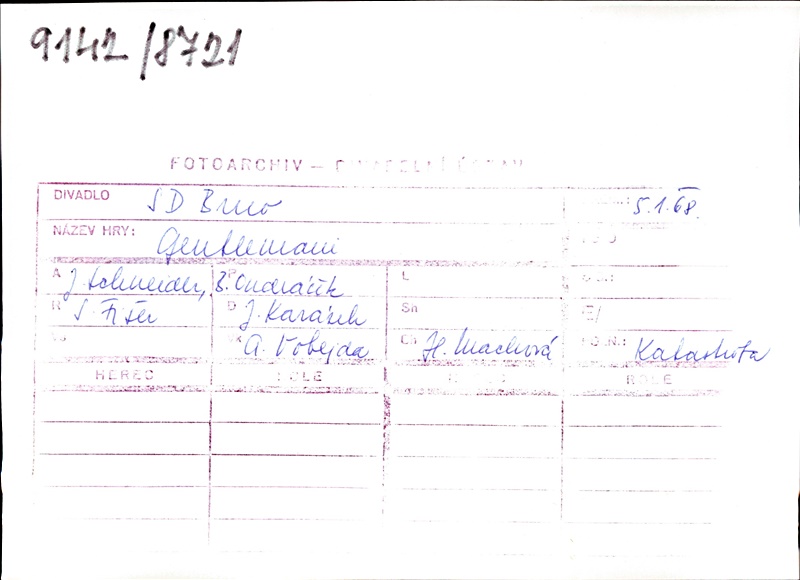 9142/8721
FOTOARCHIV – DIVADELNÍ ÚSTAV
DIVADLO SD Brno 5.1.68.
NÁZEV HRY: Gentlemani
A J. Schneider, B. Ondráček L
R S. Fišer D J. Karásek Sn
A. Vobejda Ch H. Machová Kafashota
HEREC ROLE ROLE